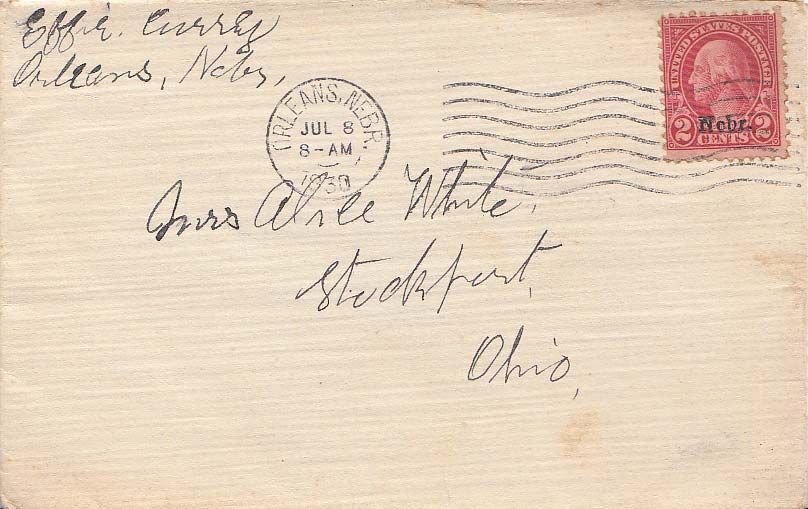 Effie. Currey
Orleans, Nebr,
ORLEANS, NEBR.
JUL 8
8-AM
1930
UNITED STATES POSTAGE
Nebr.
2 CENTS 2
Mrs Alice White,
Stockport,
Ohio,